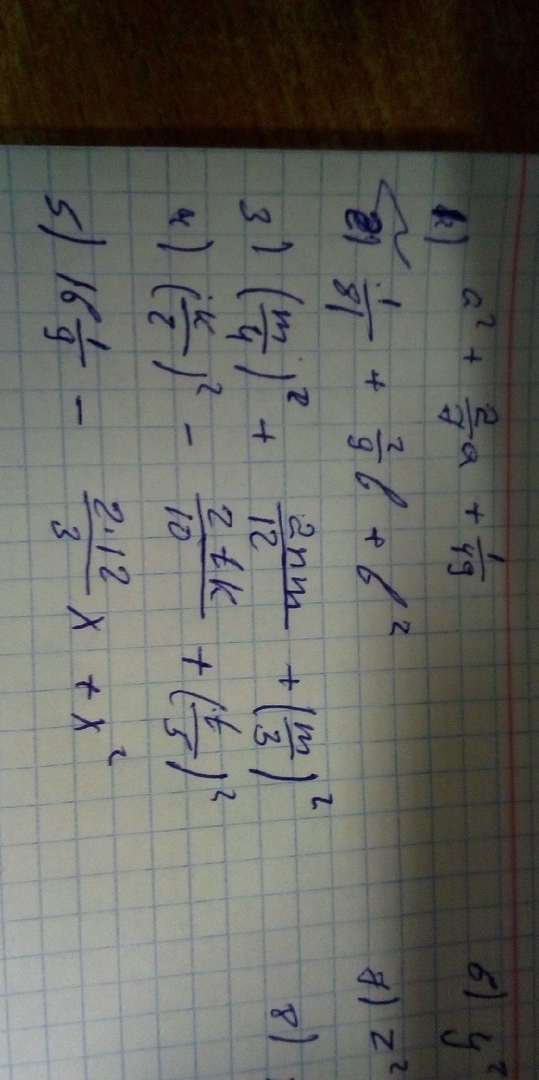 1) a² + 2/7 a + 1/49
2) 1/81 + 2/9 b + b²
3) (m/4)² + 2nm/12 + (m/3)²
4) (k/2)² - 2tk/10 + (t/5)²
5) 16 1/9 - 2·12/3 x + x²
6) y²
7) z²
8)